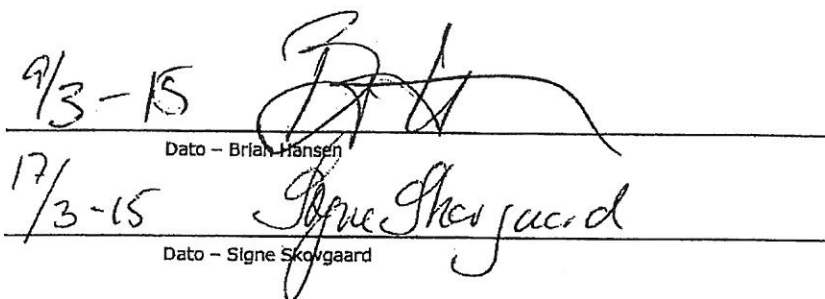 9/3-15
Dato – Brian Hansen
17/3-15 Signe Skovgaard
Dato – Signe Skovgaard